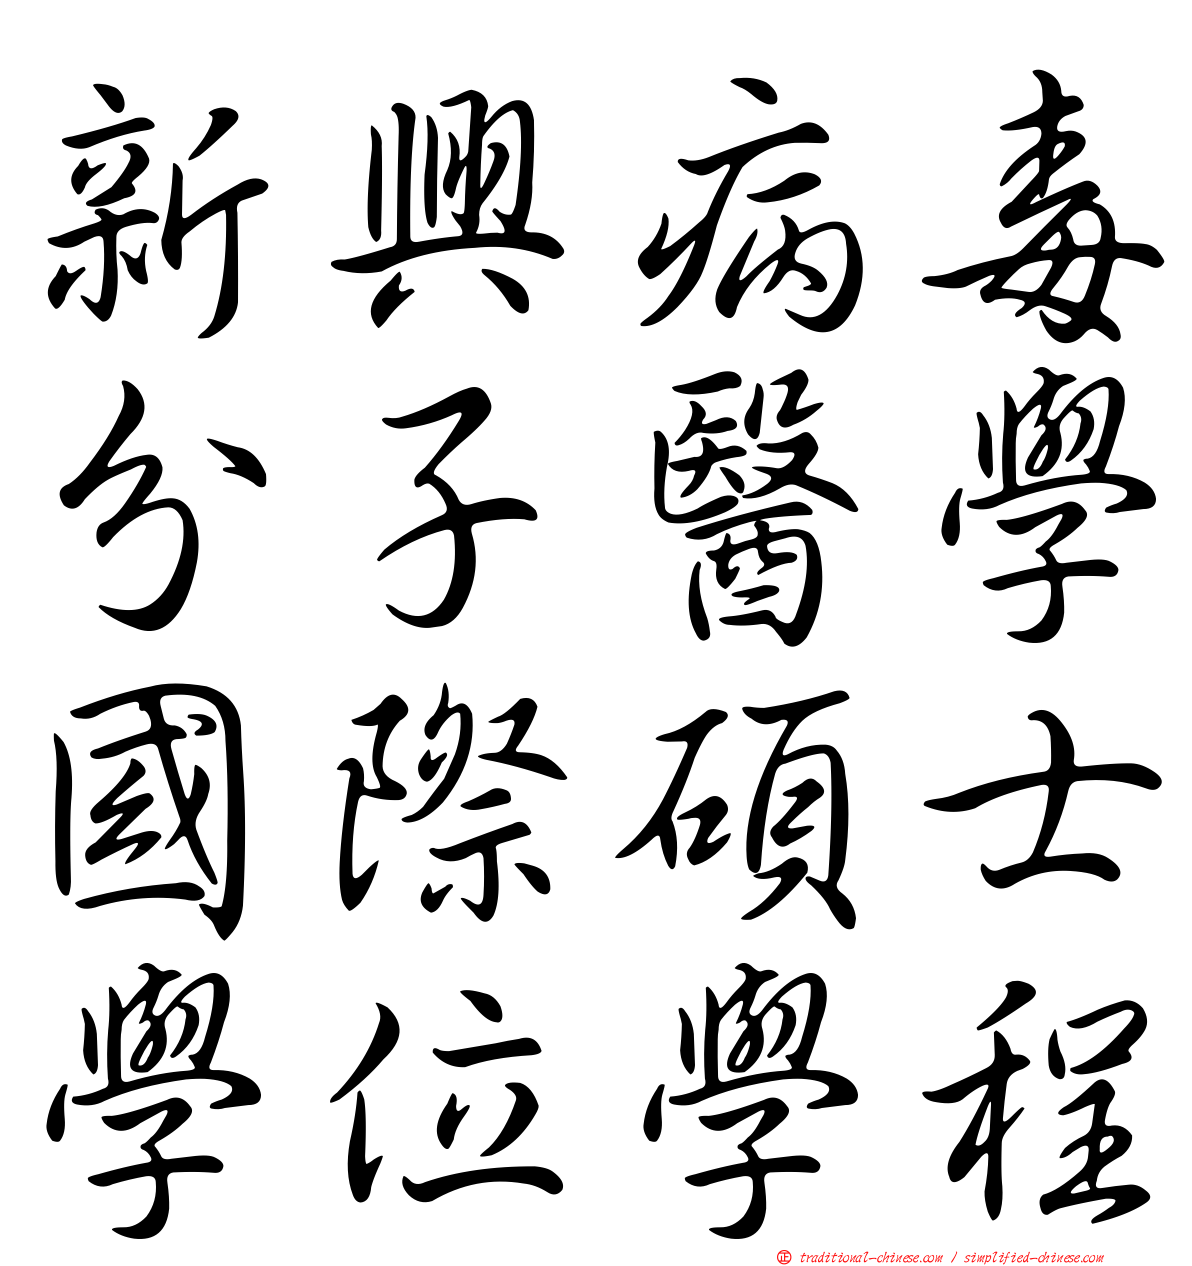 新興病毒
分子醫學
國際碩士
學位學程
正 traditional-chinese.com / simplified-chinese.com